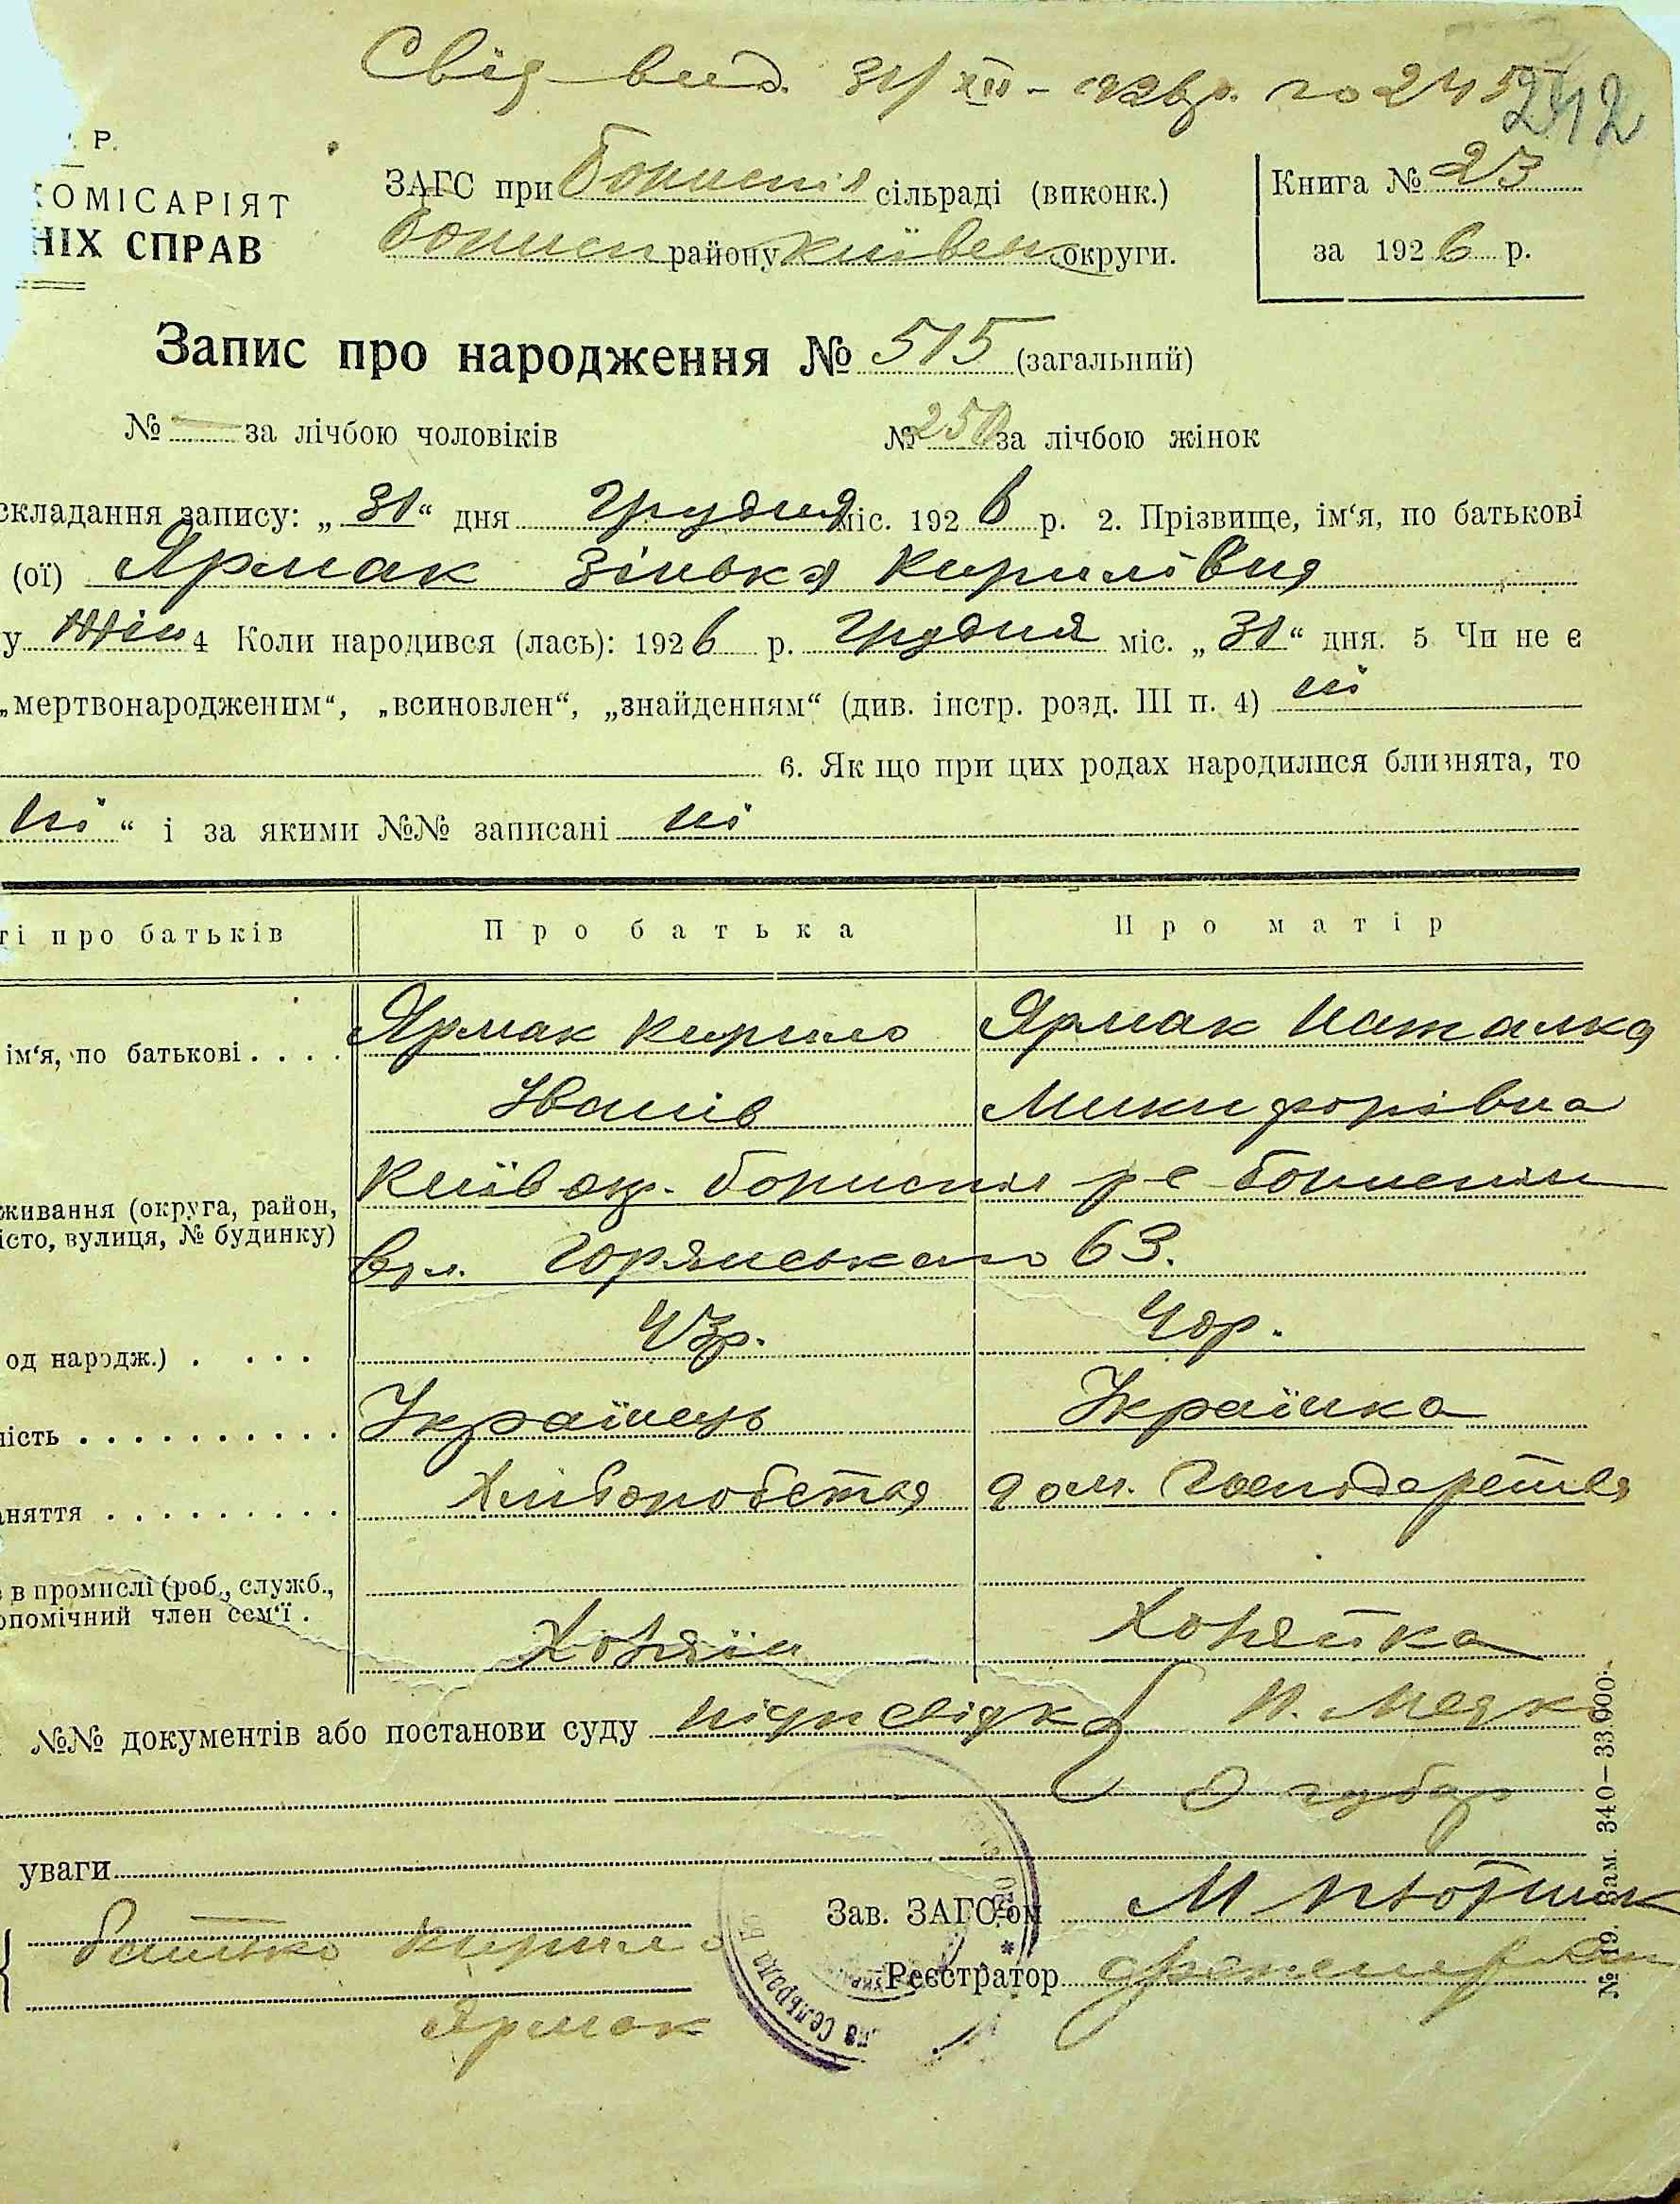 Свід вид. 31/XII – 1926 р. № 245
242
. Р.
КОМІСАРІЯТ
НІХ СПРАВ
ЗАГС при Бориспіл сільраді (виконк.)
Борисп району Київськ округи.
Книга № 23
за 1926 р.
Запис про народження № 515 (загальний)
№ — за лічбою чоловіків № 250 за лічбою жінок
складання запису: „31“ дня Грудня міс. 1926 р. 2. Прізвище, ім‘я, по батькові
(ої) Ярмак Зінька Кирилівна
у жін 4 Коли народився (лась): 1926 р. Грудня міс. „31“ дня. 5 Чи не є
„мертвонародженим“, „всиновлен“, „знайденням“ (див. інстр. розд. III п. 4) ні
6. Якщо при цих родах народилися близнята, то
ні “ і за якими №№ записані ні
ті про батьків Про батька Про матір
ім‘я, по батькові . . . . Ярмак Кирило Ярмак Наталка
Іванів Микифорівна
живання (округа, район, Київ окр. Бориспіл р-е Бориспіль
істо, вулиця, № будинку) вул. 63.
од народж.) . . . . 43р. 40р.
ність . . . . . . . . . . Українець Українка
няття . . . . . . . . . Хліборобства дом. Господарства
в промислі (роб., служб.,
опомічний член сем‘ї . Хозяїн Хозяйка
№№ документів або постанови суду підпи свідк
О Губар
уваги
Зав. ЗАГС‘ом М
Батько Кирило
Реєстратор
Ярмак
Сельрада
№ 19. Зам. 340–33.000.